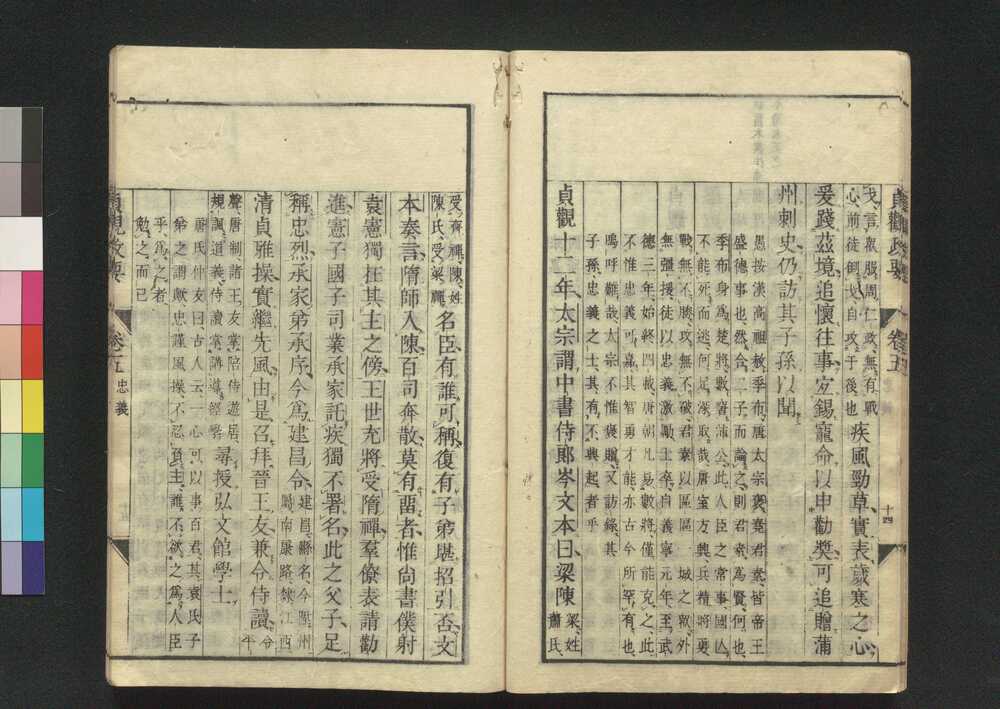 貞觀政要　卷五　十四
戈言衆服周仁政無有戰
心前徒倒戈自攻于後也疾風勁草實表歲寒之心
爰踐茲境追懷往事宜錫寵命以申勸奬可追贈蒲
州刺史仍訪其子孫以聞
愚按漢高祖赦季布唐太宗褒堯君素皆帝王
盛德事也然合二子而論之則君素爲賢何也
季布身爲楚將數窘沛公此人臣之常事國亡
不能死而逃何足深取哉唐室方興兵精將勇
戰無不勝攻無不破君素以區區一城之衆外
無彊援徒以忠義激勵士卒自義寧元年至武
德三年始終四載唐朝凡易數將僅能克之此
不惟忠義可嘉其智勇才能亦古今所罕有也
嗚呼難哉太宗不惟褒贈又訪錄其
子孫忠義之士其有不興起者乎
貞觀十二年太宗謂中書侍郎岑文本曰梁陳梁姓
蕭氏
受齊禪陳姓
陳氏受梁禪名臣有誰可稱復有子弟堪招引否文
本奏言隋師入陳百司奔散莫有留者惟尚書僕射
袁憲獨在其主之傍王世充將受隋禪羣僚表請勸
進憲子國子司業承家託疾獨不署名此之父子足
稱忠烈承家弟承序今爲建昌令建昌縣名今陞州
屬南康路隸江西
清貞雅操實繼先風由是召拜晉王友兼令侍讀令
平
聲唐制諸王友掌陪侍遊居
規諷道義侍讀掌講導經學尋授弘文館學士
唐氏仲友曰古人云一心可以事百君其袁氏子
弟之謂歟忠謹風操不忍負主誰不欲之爲人臣
乎爲之者
勉之而已
貞觀政要　卷五　忠義